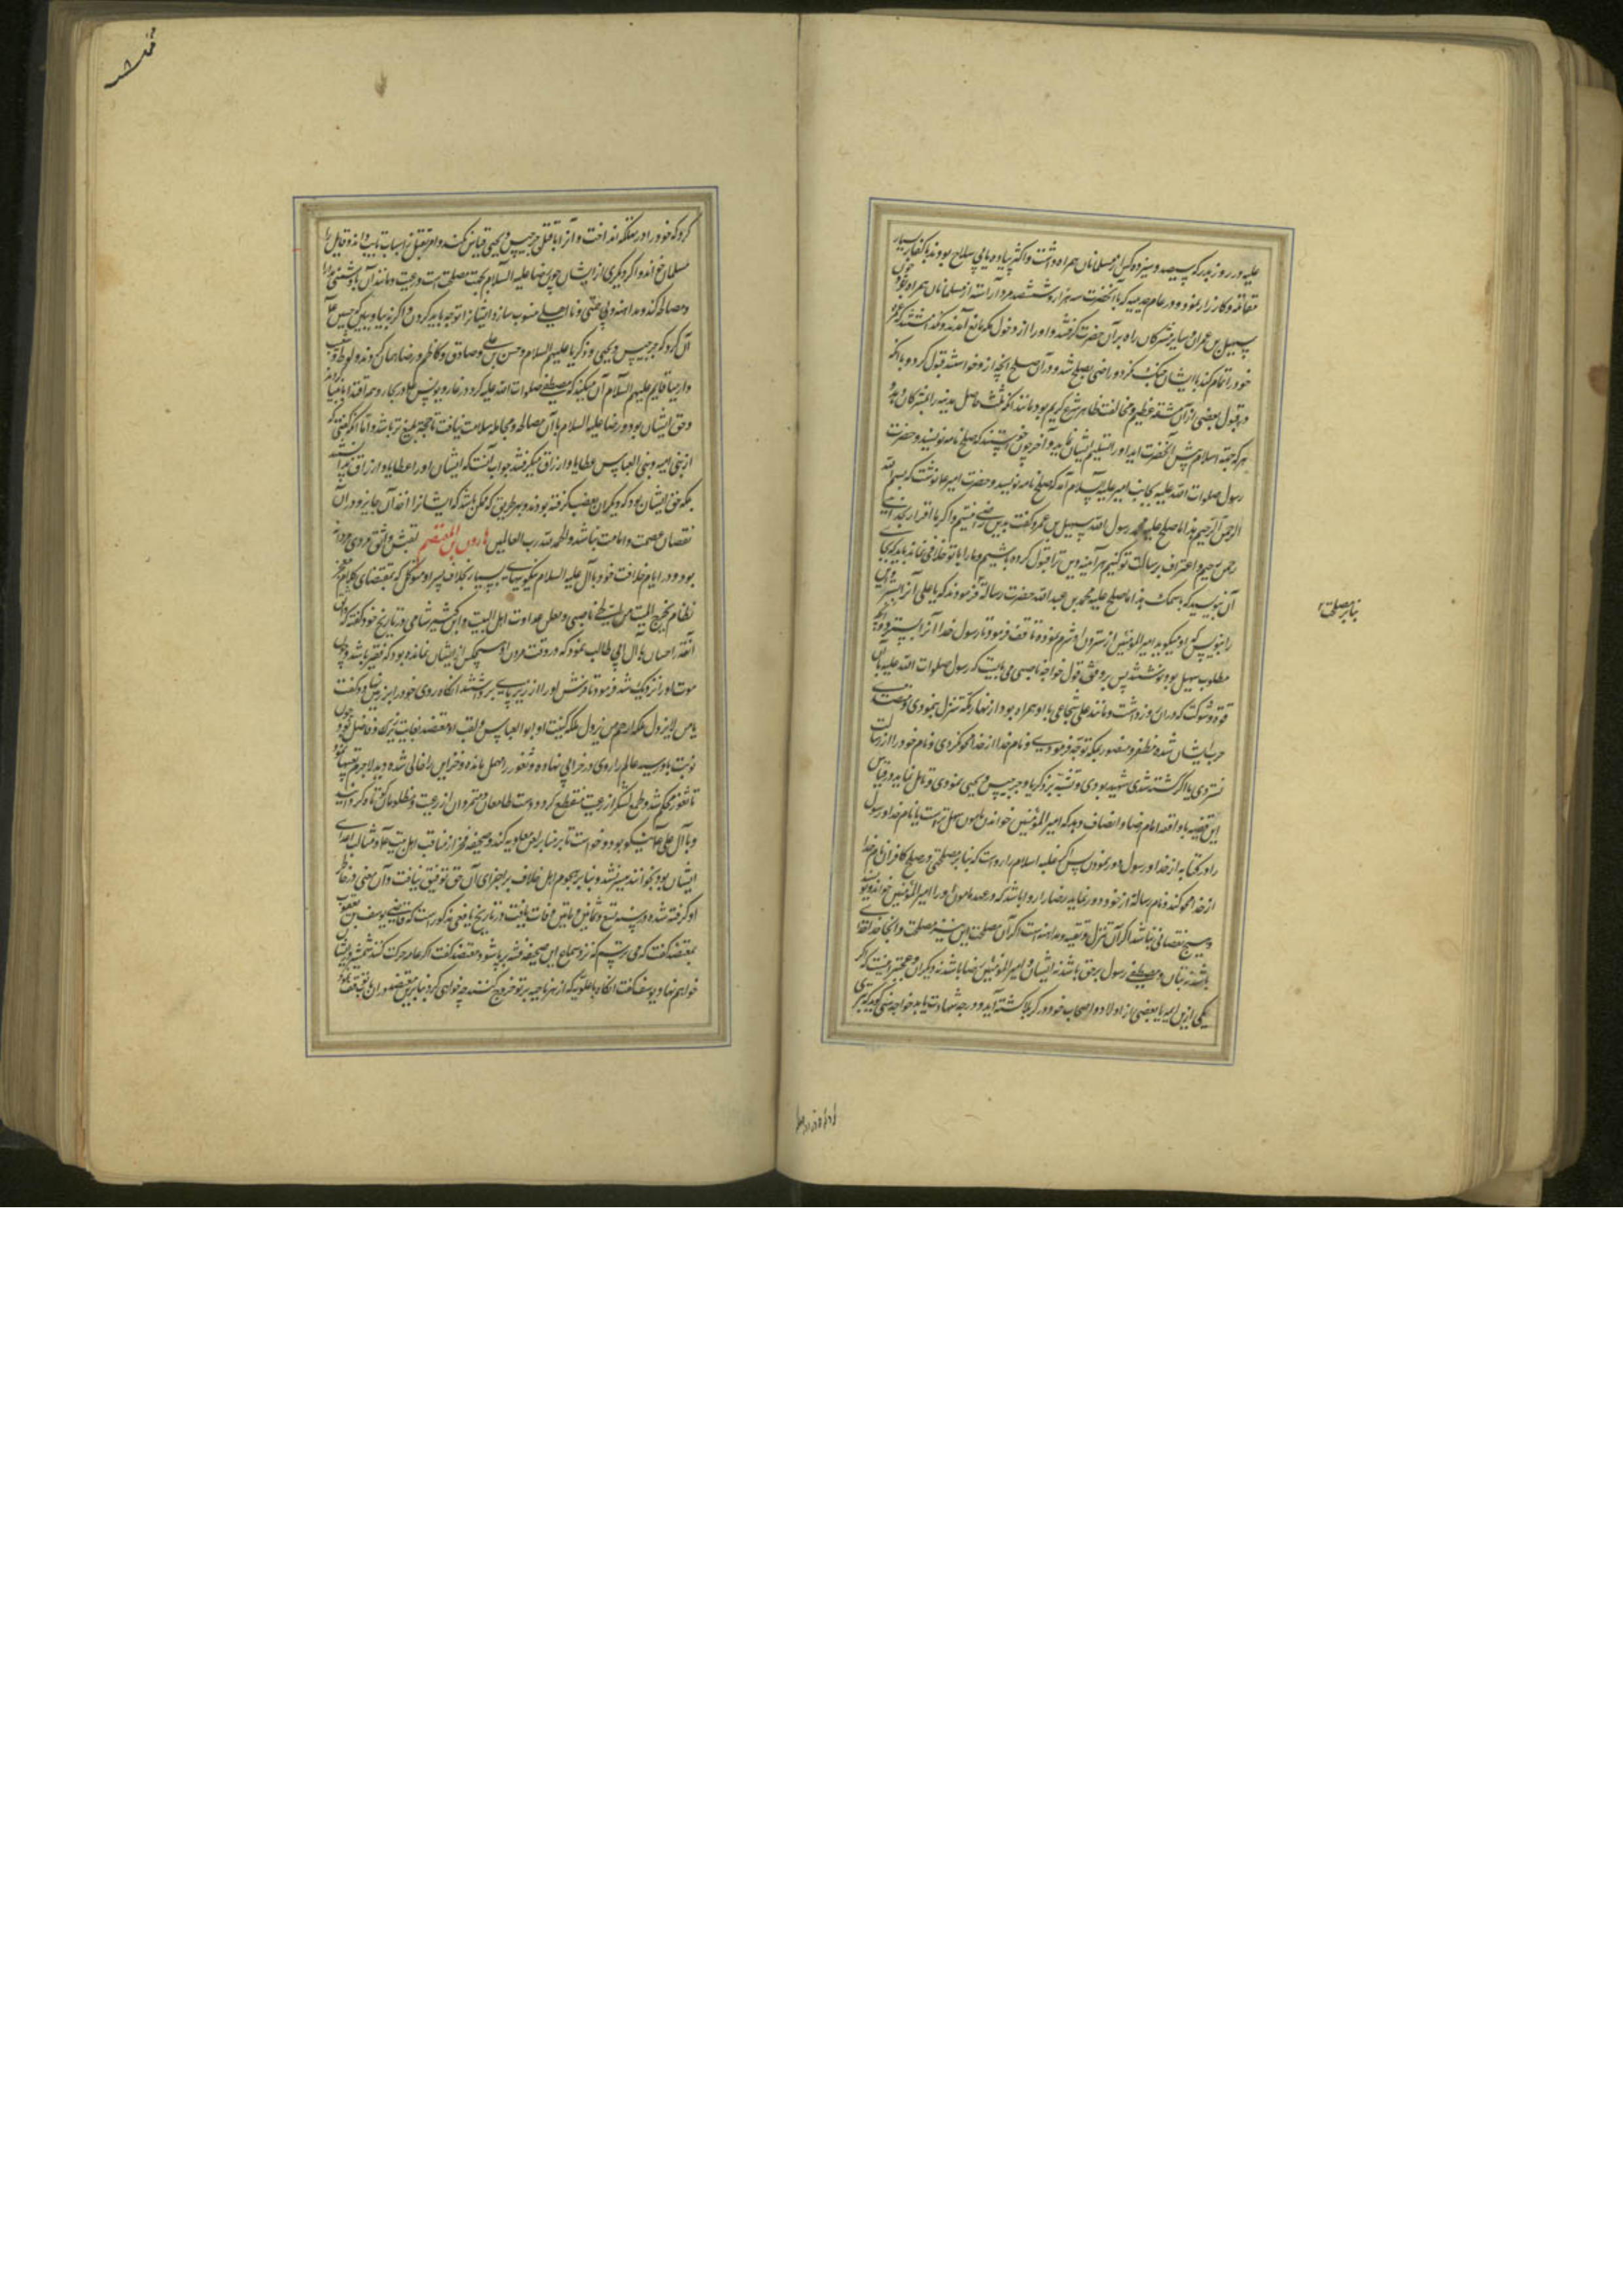 علیه در روز بدر که سیصد و سیزده کس از مسلمانان همراه داشت و اکثر پیاده یا بی سلاح بودند با کفار بسیار
مقاتله و کارزار نمود و در عام حدیبیه که با آنحضرت سه هزار و ششصد مرد آراسته از مسلمانان همراه بود چون
سهیل بن عمرو و سایر مشرکان راه بر آن حضرت گرفتند و او را از دخول مکه مانع آمدند و نگذاشتند که عمره
خود را تمام کند با ایشان جنگ نکرد و راضی بصلح شد و در آن صلح آنچه ازو خواستند قبول کرد و با آنکه
در قبول بعضی از آن مشقه عظیم و مخالفت ظاهر شرع کریم بود مانند آنکه
هر که بجهة اسلام پیش آنحضرت آید او را تسلیم ایشان نماید و آخر چون خواستند که صلح نامه نویسند و حضرت
رسول صلوات الله علیه بجانب امیر علیه السلام آمد که صلح نامه نویسد و حضرت امیر علیه نوشت که بسم الله
الرحمن الرحیم هذا ما صلح علیه محمد رسول الله سهیل بن عمرو گفت بدین راضی نیستیم و اگر ما اقرار بخدای
رحمن رحیم و اعتراف برسالت تو کنیم هر آینه دین ترا قبول کرده باشیم و ما را با تو خلافی نماند باید که بجای
آن بنویسید که باسمک هذا ما صلح علیه محمد بن عبدالله حضرت رسالة فرمودند که یا علی آنرا بستر و این
را بنویس که او میگوید امیر المؤمنین از ستردن او شرم نموده توقف فرمود تا رسول خدا آنرا بسترد و آنچه
مطلوب سهیل بود نوشتند پس بر وفق قول خواجه ناصبی می بایست که رسول صلوات الله علیه با آن
قوة و شوکت که در آن روز داشت و مانند علی شجاعی با او همراه بود از نهار مکه تنزل ننمودی و متصدی
حرب ایشان شده مظفر و منصور بمکه توجه فرمودی و نام خدا از خدا محو نکردی و نام خود را از رسالت
نستردی یا اگر کشته شدی شهید بودی و تشبه بزکریا و جرجیس و یحیی نمودی و تأمل نماید و قیاس
این قضیه با واقعه امام رضا و انصاف دهد که امیر المؤمنین خواندن مأمون سهل ترست یا نام خدا و رسول
را در کتابه از خدا و رسول دور نمودن پس اگر علیه السلام را رواست که بنا بر مصلحتی و صلح کافران نام خدا
از خدا محو کند و نام رسالة از خود دور نماید رضا را روا باشد که در عهد مأمون او را امیر المؤمنین خواند و نویسد
و هیچ نقصانی نباشد اگر آن تنزل و تقیه و مداهنه است اگر آن مصلحت این نیز مصلحت و آنجا خدا خدا
باشد نه بتان و مصطفی رسول بر حق باشد نه ایشان و امیر المؤمنین رضا باشد نه دیگران و عجبتر اینست که اگر
یکی از این ائمه با بعضی از اولاد و اصحاب خود در کربلا کشته آید و درجه شهادت یابد خواجه سنی گوید که بیخردی
بنا بر مصلحت
کرد که خود را در مهلکه انداخت و آنرا با قتل جرجیس و یحیی قیاس نکند و امر بقتل را تایب داند و قایل را
مسلمان خواند و اگر دیگری از ایشان چون رضا علیه السلام بجهت مصلحت امت و رعیت و مانند آن با دشمنی مدارا
و مصالحه کند و مداهنه و بی حقی و نا اهلی منسوب سازد ایشانرا توجه باید کردن و اگر نه بیاد ببین که حسین علی
آن کرد که جرجیس و یحیی و زکریا علیهم السلام و حسن بن علی و صادق و کاظم و رضا همان کردند و لوط و یعقوب
و ارمیا و قایم علیهم السلام آن میکند که مصطفی صلوات الله علیه کرد در غار و یونس علیه در بحار و همه اقتدا بانبیا کرده اند
و حق ایشان بود و رضا علیه السلام با آن مصالحه و مجامله سلامت نیافت تا حجة بلیغ تر باشد و اما آنکه گفتی که
از بنی امیه و بنی العباس عطایا و ارزاق میگرفتند جواب آنست که ایشان او را عطایا و ارزاق نمیدانستند
بلکه حق ایشان بود که دیگران بغصب گرفته بودند و بهر طریق که ممکن باشد که ایشانرا اخذ آن جایز و در آن
نقصان عصمت و امامت نباشد و الحمد لله رب العالمین هارون بن المعتصم لقبش واثق مردی مردانه
بود و در ایام خلافت خود با آل علیه السلام نیکویی های بسیار بخلاف پسر او متوکل که بمقتضای کلام معجز
نظام یخرج المیت من الحی ناصبی و معلن عداوت اهل البیت و ابن کثیر شامی در تاریخ خود گفته که واثق
آنقدر احسان با آل ابی طالب نمود که در وقت مردن او هیچکس از ایشان نمانده بود که فقیر باشد و چون
موت او نزدیک شد فرمود تا فرش او را از زیر پای برداشتند آنگاه روی خود را بر زمین نهاد و گفت
یا من لا یزول ملکه ارحم من یزول ملکه کنیت او ابو العباس و لقب او معتضد بغایت زیرک و فاضل بود چون
نوبت باو رسید عالم را روی در خرابی نهاده و ثغور را مهمل مانده و خزاین را خالی شده دید لاجرم تدبیرها نمود
تا ثغور محکم شد و طمع لشکر از رعیت منقطع کرد و دست طامعان و متمردان از رعیت و مظلومان کوتاه گردانید
و با آل علی علیه نیکو بود و خواست تا بر منابر لعن معاویه کند و صحیفه محرر از مناقب اهل بیت علیه و مثالب اعدای
ایشان بود بخوانند میسر نشد و بنا بر هجوم اهل خلاف بر اجرای آن حق توفیق نیافت و آن معنی در خاطر
او گرفته شده در سنه تسع و ثمانین و مأتین وفات یافت و در تاریخ یافعی مذکور است که قاضی یوسف بن یعقوب
بمعتضد گفت که می ترسم که نزد سماع این صحیفه فتنه برپا شود معتضد گفت اگر عامه حرکت کنند شمشیر در ایشان
خواهم نهاد یوسف گفت آنگاه با علویه که از هر ناحیه بر تو خروج کنند چه خواهی کرد بنا برین معتضد در آن باب توقف نمود